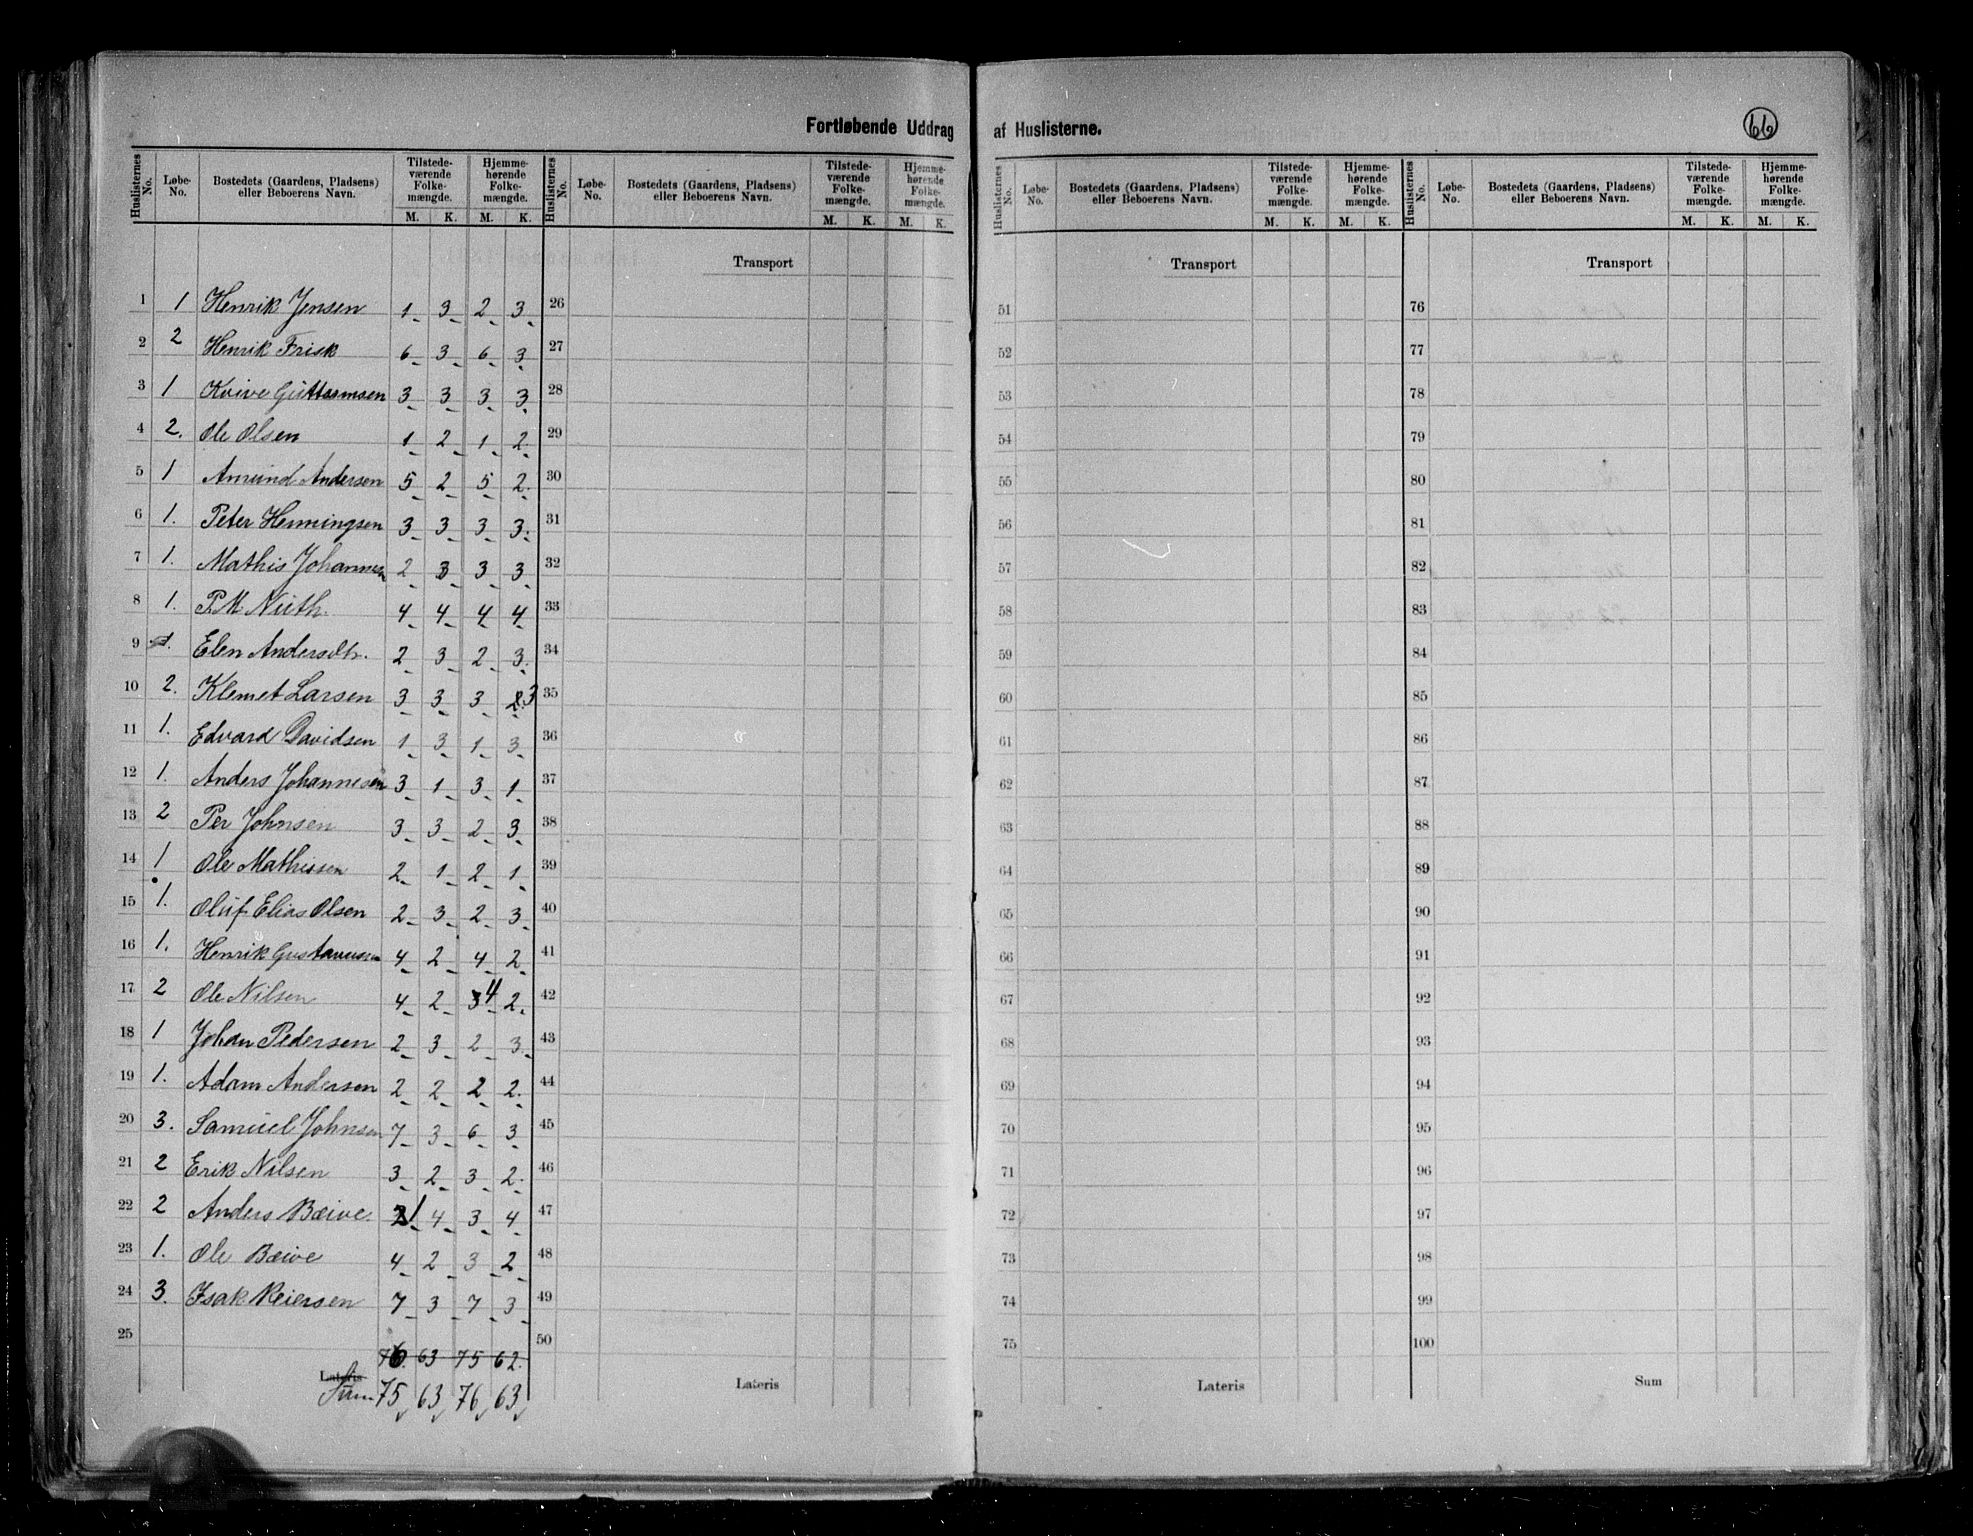 Fortløbende Uddrag af Huslisterne.
66
Huslisternes No. | Løbe-No. | Bostedets (Gaardens, Pladsens) eller Beboerens Navn. | Tilstedeværende Folkemængde. M. K. | Hjemmehørende Folkemængde. M. K.
Huslisternes No. | Løbe-No. | Bostedets (Gaardens, Pladsens) eller Beboerens Navn. | Tilstedeværende Folkemængde. M. K. | Hjemmehørende Folkemængde. M. K.
Huslisternes No. | Løbe-No. | Bostedets (Gaardens, Pladsens) eller Beboerens Navn. | Tilstedeværende Folkemængde. M. K. | Hjemmehørende Folkemængde. M. K.
Huslisternes No. | Løbe-No. | Bostedets (Gaardens, Pladsens) eller Beboerens Navn. | Tilstedeværende Folkemængde. M. K. | Hjemmehørende Folkemængde. M. K.
Transport Transport Transport
1 1 Henrik Jensen 1 3 2 3 26 51 76
2 2 Henrik Frisk 6 3 6 3 27 52 77
3 1 Kvive Guttormsen 3 3 3 3 28 53 78
4 2. Ole Olsen 1 2 1 2 29 54 79
5 1 Amund Andersen 5 2 5 2 30 55 80
6 1. Peter Henningsen 3 3 3 3 31 56 81
7 1. Mathis Johannesen 2 3 3 3 32 57 82
8 1. P. M Nuth. 4 4 4 4 33 58 83
9 1. Elen Andersdtr. 2 3 2 3 34 59 84
10 2. Klemet Larsen 3 3 3 3 35 60 85
11 1. Edvard Davidsen 1 3 1 3 36 61 86
12 1. Anders Johannesen 3 1 3 1 37 62 87
13 2 Per Johnsen 3 3 2 3 38 63 88
14 1 Ole Mathissen 2 1 2 1 39 64 89
15 1. Oluf Elias Olsen 2 3 2 3 40 65 90
16 1. Henrik Gustavusen 4 2 4 2 41 66 91
17 2 Ole Nilsen 4 2 3 4 2 42 67 92
18 1 Johan Pedersen 2 3 2 3 43 68 93
19 1. Adam Andersen 2 2 2 2 44 69 94
20 3. Samuel Johnsen 7 3 6 3 45 70 95
21 2 Erik Nilsen 3 2 3 2 46 71 96
22 2 Anders Bæive 1 4 3 4 47 72 97
23 1. Ole Bæive 4 2 3 2 48 73 98
24 3. Isak Reiersen 7 3 7 3 49 74 99
25 50 75 100
76. 63 75 62.
Lateris Lateris Lateris Sum
Sum 75 63 76 63